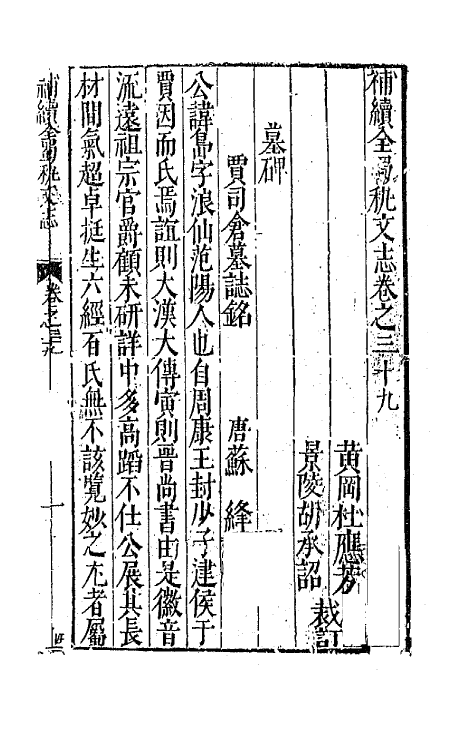 補續全蜀秇文志卷之三十九
黃岡杜應芳
景陵胡承詔
裁訂
墓碑
賈司倉墓誌銘
唐蘇絳
公諱島字浪仙范陽人也自周康王封少子建侯于
賈因而氏焉誼則大漢大傳寅則晉尚書由是徽音
流遠祖宗官爵顧未研詳中多高蹈不仕公展其長
材間氣超卓挺生六經百氏無不該覽妙之尤者屬
補續全蜀秇文志
卷之三十九
一